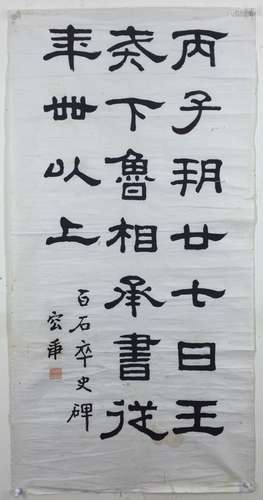 丙子朔廿七日壬
下魯相承書從
年卌以上
百石卒史碑